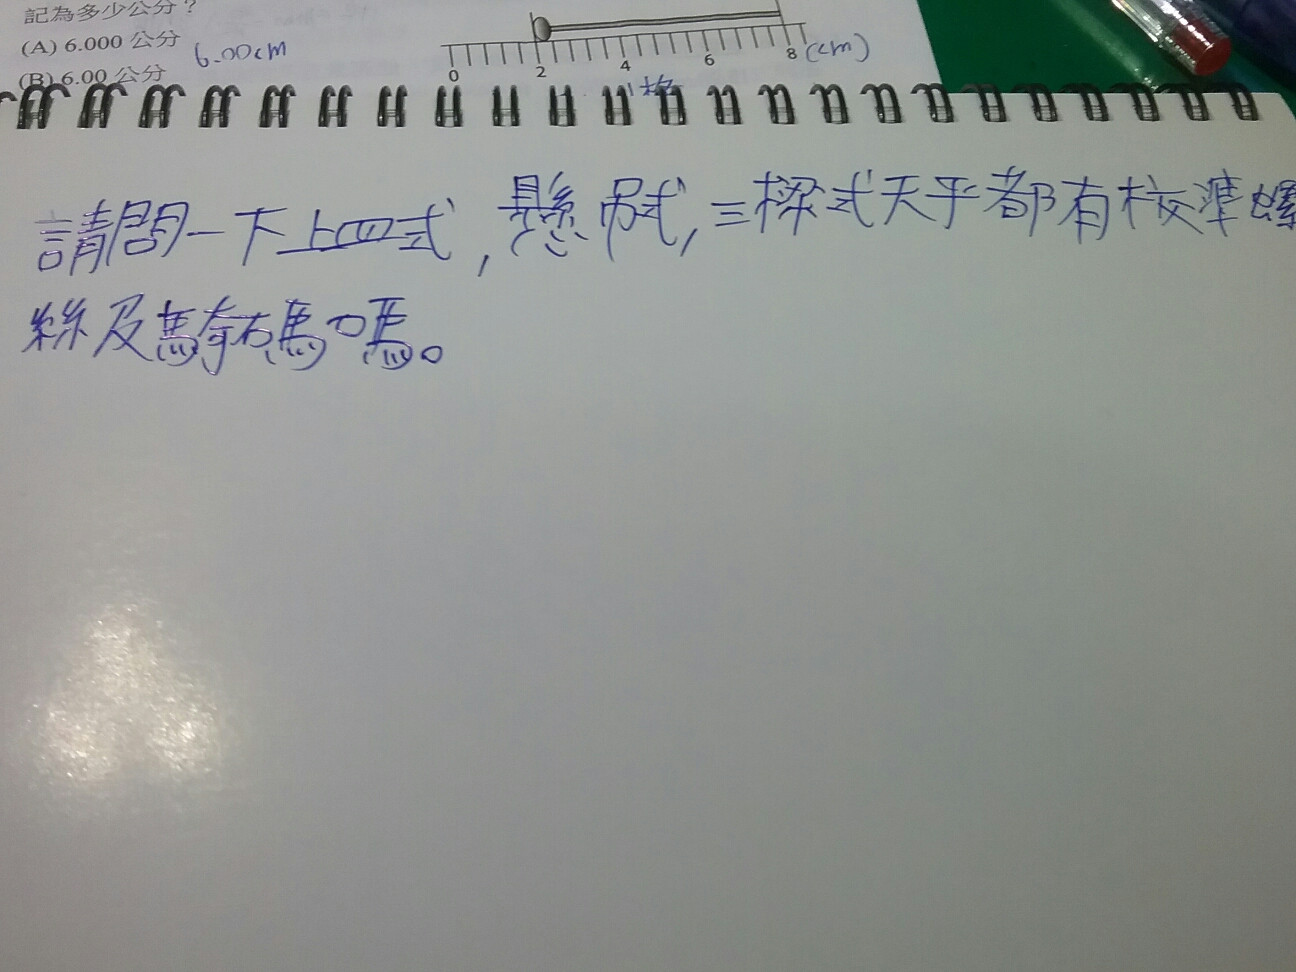 記為多少公分？
(A) 6.000 公分 6.00cm
(B) 6.00 公分
0 2 4 6 8 (cm)
請問一下上皿式,懸吊式,三樑式天平都有校準螺
絲及騎碼嗎。